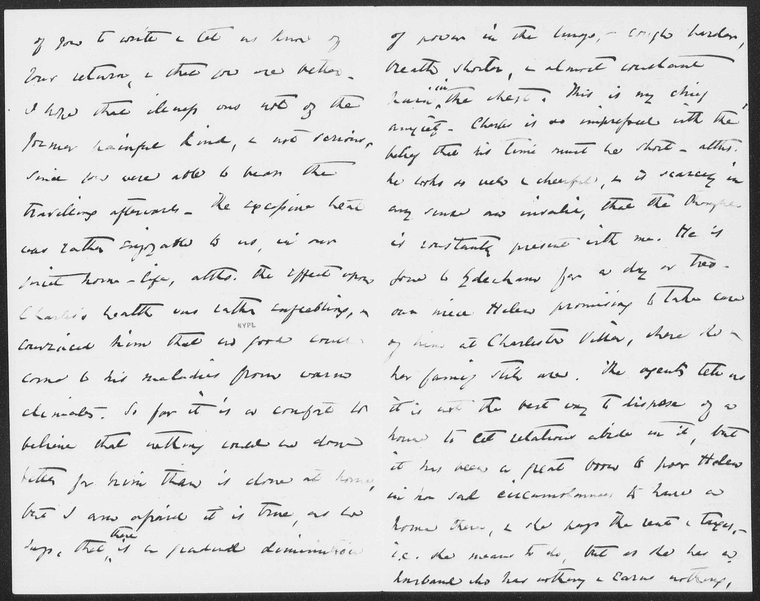 of you to write & let us know of
your return, & that you are better.
I hope that illness was not of the
former painful kind, & not serious,
since you were able to bear the
travelling afterwards. The excessive heat
was rather enjoyable to us, in our
quiet home-life, altho. the effect upon
Charles's health was rather enfeebling, &
convinced him that no good could
come to his maladies from warm
climates. So far it is a comfort to
believe that nothing could be done
better for him than is done at home,
but I am afraid it is true, as he
says, that there is a gradual diminution
of power in the lungs, - cough harder,
breath shorter, & almost constant
pain in the chest. This is my chief
anxiety. Charles is so impressed with the
belief that his time must be short - altho.
he looks so well & cheerful, & is scarcely in
any sense an invalid, that the thought
is constantly present with me. He is
gone to Sydenham for a day or two -
our niece Helen promising to take care
of him at Charleston Villa, where she &
her family still are. The agents tell us
it is not the best way to dispose of a
house to let relations abide in it, but
it has been a great boon to poor Helen
in her sad circumstances to have a
home there, & she pays the rent & taxes, -
i.e. she means to do, but as she has a
husband who has nothing & earns nothing,
NYPL